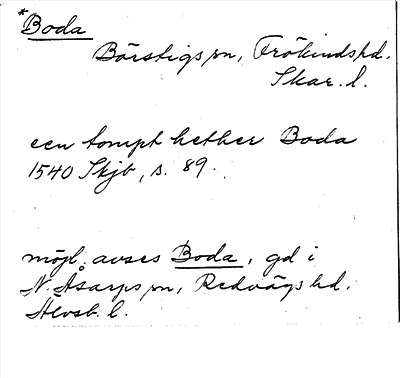 *Boda
Börstigs sn, Frökinds hd.
Skar. l.
een tompt hether Boda
1540 Skjb, s. 89.
möjl. avses Boda, gd i
N. Åsarps sn, Redvägs hd.
Älvsb. l.